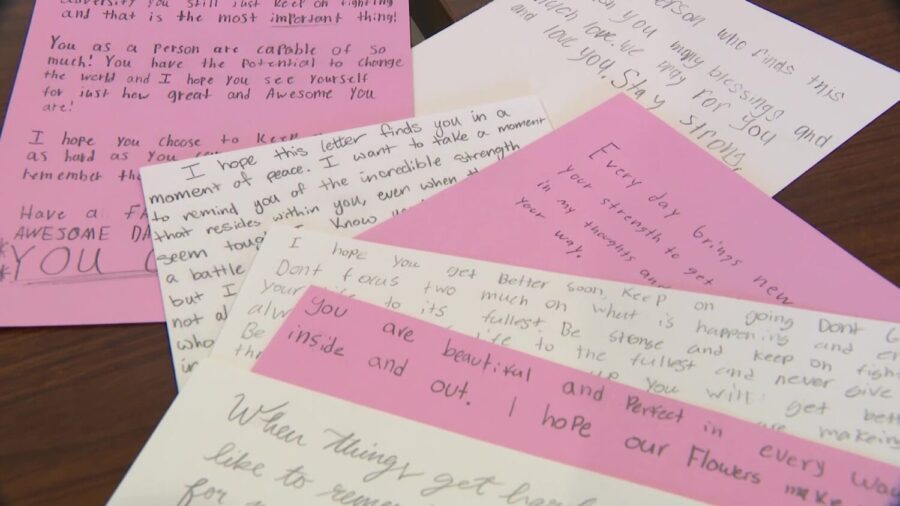 adversity you still just keep on fighting
and that is the most important thing!
You as a person are capable of so
much! You have the potential to change
the world and I hope you see yourself
for just how great and Awesome you
are!
I hope you choose to keep
as hard as you
remember
Have a
AWESOME DA
*YOU
person who finds this
you many blessings and
much love. We pray for you
and love you. Stay
strong
I hope this letter finds you in a
moment of peace. I want to take a moment
to remind you of the incredible strength
that resides within you, even when
seem toug
I know
a battle
but I
not al
who
in
Every day brings new
your strength to get
in my thoughts and
your way.
I hope you get Better soon, keep on going Dont
Dont focus two much on what is happening and
your life to its fullest. Be stronge and keep on figh
alw life to the fullest and never give
Be up you will get bett
th are makeing
You are beautiful and Perfect in every way
inside and out. I hope our Flowers make
When things get hard
like to reme
for